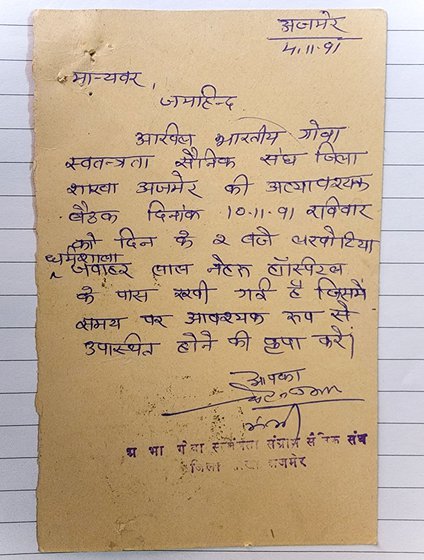 अजमेर
4.11.91
मान्यवर,
जयहिन्द
अखिल भारतीय गोवा
स्वतन्त्रता सैनिक संघ जिला
शाखा अजमेर की अत्यावश्यक
बैठक दिनांक 10.11.91 रविवार
को दिन के २ बजे लखोटिया
धर्मशाला
जवाहर लाल नेहरू हॉस्पिटल
के पास रखी गई है जिसमें
समय पर आवश्यक रूप से
उपास्थित होने की कृपा करें।
आपका
मंत्री
भा गोवा संग्राम सैनिक संघ
जिला अजमेर